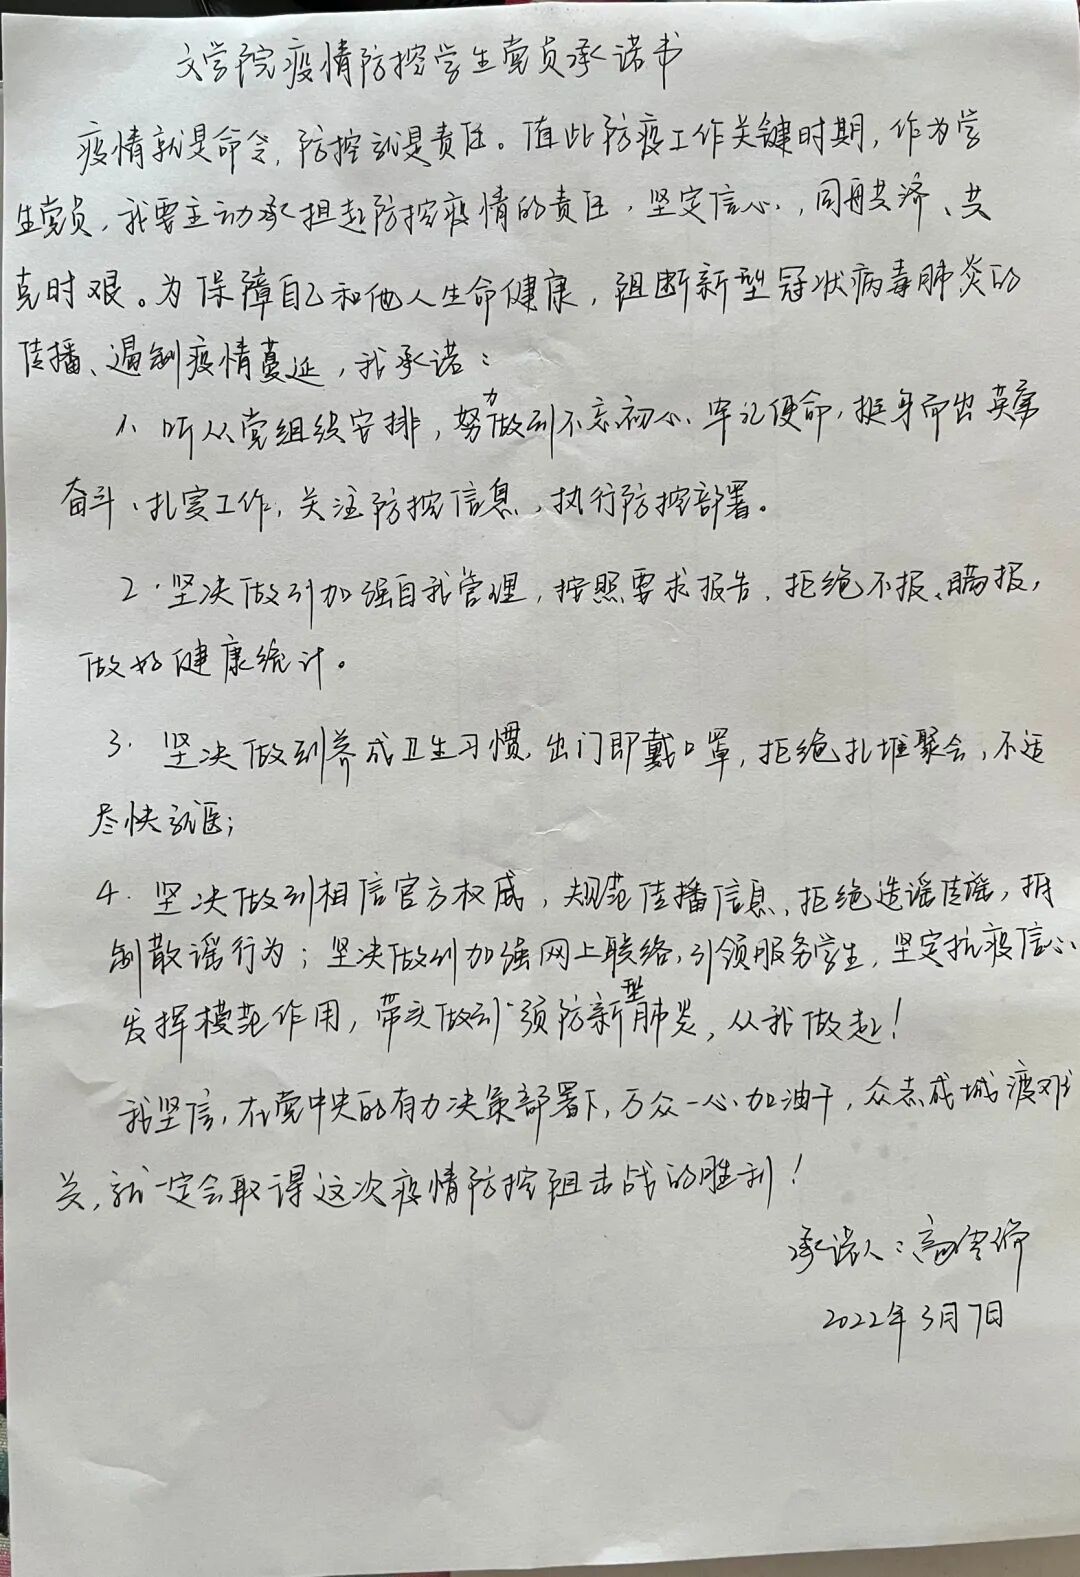 文学院疫情防控学生党员承诺书
疫情就是命令，防控就是责任。值此防疫工作关键时期，作为学
生党员，我要主动承担起防控疫情的责任，坚定信心，同舟共济、共
克时艰。为保障自己和他人生命健康，阻断新型冠状病毒肺炎的
传播、遏制疫情蔓延，我承诺：
1、听从党组织安排，努力做到不忘初心、牢记使命，挺身而出英勇
奋斗、扎实工作，关注防控信息，执行防控部署。
2.坚决做到加强自我管理，按照要求报告，拒绝不报、瞒报，
做好健康统计。
3.坚决做到养成卫生习惯，出门即戴口罩，拒绝扎堆聚会，不适
尽快就医；
4.坚决做到相信官方权威，规范传播信息，拒绝造谣传谣，抵
制散谣行为；坚决做到加强网上联络，引领服务学生，坚定抗疫信心
发挥模范作用，带头做到“预防新型肺炎，从我做起！
我坚信，在党中央的有力决策部署下，万众一心、加油干，众志成城渡难
关，就一定会取得这次疫情防控阻击战的胜利！
承诺人：高
2022年3月7日